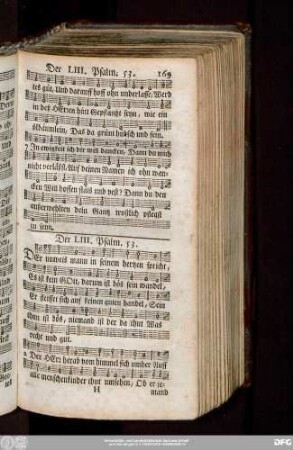 Der LIII. Psalm. 53. 169
tes güt, Und darauff hoff ohn underlasse, Werd
in deß HErren hauß Gepflantzt seyn, wie ein
ölbäumlein, Das da grünt hübsch und fein.
7 In ewigkeit ich dir will dancken, Dann du mich
nicht verläst, Auf deinen Namen ich ohn wan-
cken Will hoffen staiß und vest? Dann du den
außerwehlten dein Gantz tröstlich pflegst
zu seyn.
Der LIII. Psalm. 53.
DEr unweis mann in seinem hertzen spricht,
Es ist kein GOtt, darum ist bös sein wandel,
Er steiffet sich auf seinen handel, Sein
thun ist bös, niemand ist der da thut Was
recht und gut.
2 Der HErr herab vom himmel sich umher Auff
alle menschenkinder thut umsehen, Ob er je-
H mand